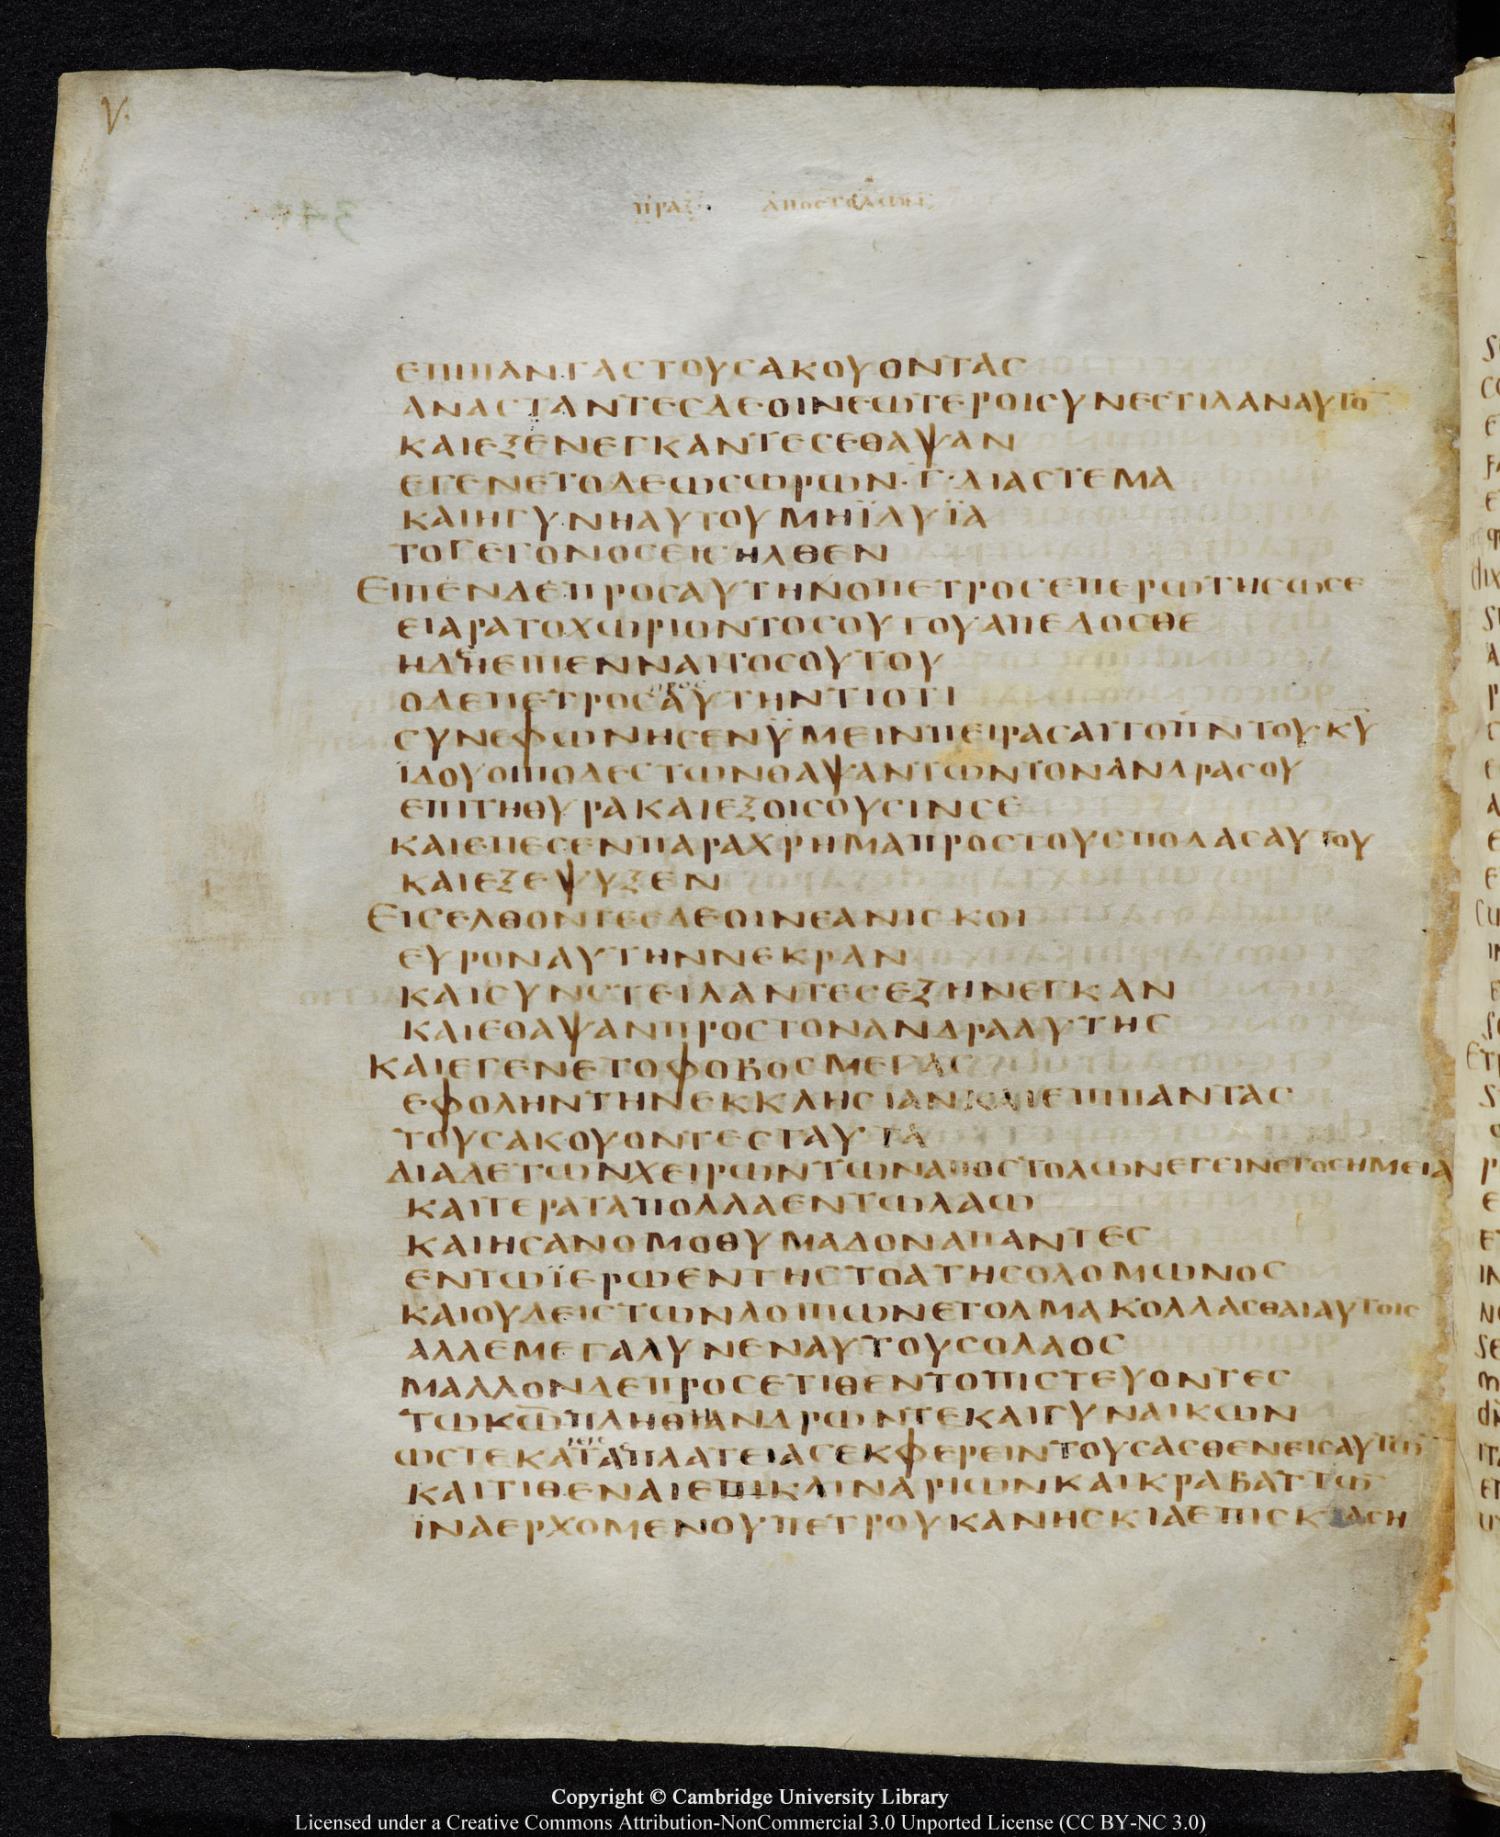 V.
ΠΡΑΞ· ΑΠΟΣΤΟΛΩΝ
ΕΠΙΠΑΝΤΑΣΤΟΥΣΑΚΟΥΟΝΤΑΣ
ΑΝΑΣΤΑΝΤΕΣΔΕΟΙΝΕΩΤΕΡΟΙΣΥΝΕΣΤΙΛΑΝΑΥΤΟ̅
ΚΑΙΕΞΕΝΕΓΚΑΝΤΕΣΕΘΑΨΑΝ
ΕΓΕΝΕΤΟΔΕΩΣΩΡΩΝ·Γ̅·ΔΙΑΣΤΕΜΑ
ΚΑΙΗΓΥΝΗΑΥΤΟΥΜΗΪΔΥΪΑ
ΤΟΓΕΓΟΝΟΣΕΙΣΗΛΘΕΝ
ΕΙΠΕΝΔΕΠΡΟΣΑΥΤΗΝΟΠΕΤΡΟΣΕΠΕΡΩΤΗΣΩΣΕ
ΕΙΑΡΑΤΟΧΩΡΙΟΝΤΟΣΟΥΤΟΥΑΠΕΔΟΣΘΕ
ΗΔΗΕΙΠΕΝΝΑΙΤΟΣΟΥΤΟΥ
ΟΔΕΠΕΤΡΟΣΑΥΤΗΝΤΙΟΤΙ
ΣΥΝΕΦΩΝΗΣΕΝΫΜΕΙΝΠΕΙΡΑΣΑΙΤΟΠ̅Ν̅ΤΟΥΚ̅Υ̅
ΪΔΟΥΟΙΠΟΔΕΣΤΩΝΘΑΨΑΝΤΩΝΤΟΝΑΝΔΡΑΣΟΥ
ΕΠΙΤΗΘΥΡΑΚΑΙΕΞΟΙΣΟΥΣΙΝΣΕ
ΚΑΙΕΠΕΣΕΝΠΑΡΑΧΡΗΜΑΠΡΟΣΤΟΥΣΠΟΔΑΣΑΥΤΟΥ
ΚΑΙΕΞΕΨΥΞΕΝ
ΕΙΣΕΛΘΟΝΤΕΣΔΕΟΙΝΕΑΝΙΣΚΟΙ
ΕΥΡΟΝΑΥΤΗΝΝΕΚΡΑΝ
ΚΑΙΣΥΝΣΤΕΙΛΑΝΤΕΣΕΞΗΝΕΓΚΑΝ
ΚΑΙΕΘΑΨΑΝΠΡΟΣΤΟΝΑΝΔΡΑΑΥΤΗΣ
ΚΑΙΕΓΕΝΕΤΟΦΟΒΟΣΜΕΓΑΣ
ΕΦΟΛΗΝΤΗΝΕΚΚΛΗΣΙΑΝΚΑΙΕΠΙΠΑΝΤΑΣ
ΤΟΥΣΑΚΟΥΟΝΤΕΣΤΑΥΤΑ
ΔΙΑΔΕΤΩΝΧΕΙΡΩΝΤΩΝΑΠΟΣΤΟΛΩΝΕΓΕΙΝΕΤΟΣΗΜΕΙΑ
ΚΑΙΤΕΡΑΤΑΠΟΛΛΑΕΝΤΩΛΑΩ
ΚΑΙΗΣΑΝΟΜΟΘΥΜΑΔΟΝΑΠΑΝΤΕΣ
ΕΝΤΩΪΕΡΩΕΝΤΗΣΤΟΑΤΗΣΟΛΟΜΩΝΟΣ
ΚΑΙΟΥΔΕΙΣΤΩΝΛΟΙΠΩΝΕΤΟΛΜΑΚΟΛΛΑΣΘΑΙΑΥΤΟΙΣ
ΑΛΛΕΜΕΓΑΛΥΝΕΝΑΥΤΟΥΣΟΛΑΟΣ
ΜΑΛΛΟΝΔΕΠΡΟΣΕΤΙΘΕΝΤΟΠΙΣΤΕΥΟΝΤΕΣ
ΤΩΚ̅Ω̅ΠΛΗΘΗΑΝΔΡΩΝΤΕΚΑΙΓΥΝΑΙΚΩΝ
ΩΣΤΕΚΑΤΑΠΛΑΤΕΙΑΣΕΚΦΕΡΕΙΝΤΟΥΣΑΣΘΕΝΕΙΣΑΥΤΩ̅
ΚΑΙΤΙΘΕΝΑΙΕΠΙΚΛΙΝΑΡΙΩΝΚΑΙΚΡΑΒΑΤΤΩ̅
ΪΝΑΕΡΧΟΜΕΝΟΥΠΕΤΡΟΥΚΑΝΗΣΚΙΑΕΠΙΣΚΙΑΣΗ
Copyright © Cambridge University Library
Licensed under a Creative Commons Attribution-NonCommercial 3.0 Unported License (CC BY-NC 3.0)